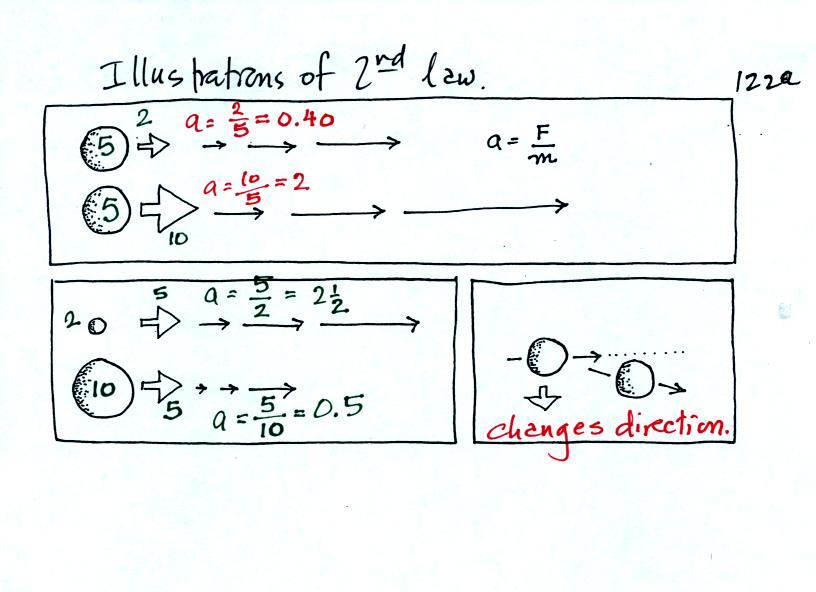 Illustrations of 2nd law.
122a
2
a = 2/5 = 0.40
5
a = F/m
a = 10/5 = 2
5
10
5
a = 5/2 = 2 1/2
2
10
5
a = 5/10 = 0.5
changes direction.